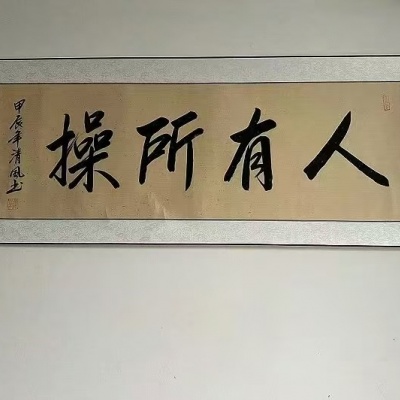 人有所操
甲辰年清风书